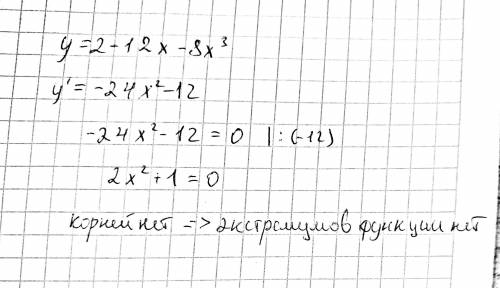 y = 2 - 12x - 8x³
y' = -24x² - 12
-24x² - 12 = 0 | : (-12)
2x² + 1 = 0
корней нет => экстремумов функции нет